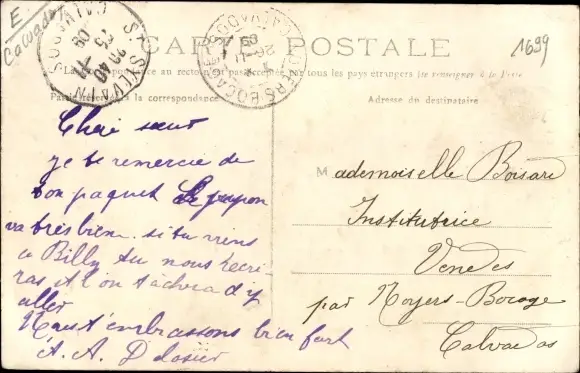 E
Calvados
1699
CARTE POSTALE
La correspondance au recto n'est pas acceptée par tous les pays étrangers (se renseigner à la Poste)
Partie réservée à la correspondance
Adresse du destinataire
ST SYLVAIN
CALVADOS
NOYERS-BOCAGE
CALVADOS
Chère sœur
je te remercie de
ton paquet Le jupon
va très bien. si tu viens
a Billy tu nous l'ecri-
ras et l'on tâchera d'y
aller
Nous t'embrassons bien fort
A. A.
Mademoiselle Boisard
Institutrice
Vendes
par Noyers-Bocage
Calvados